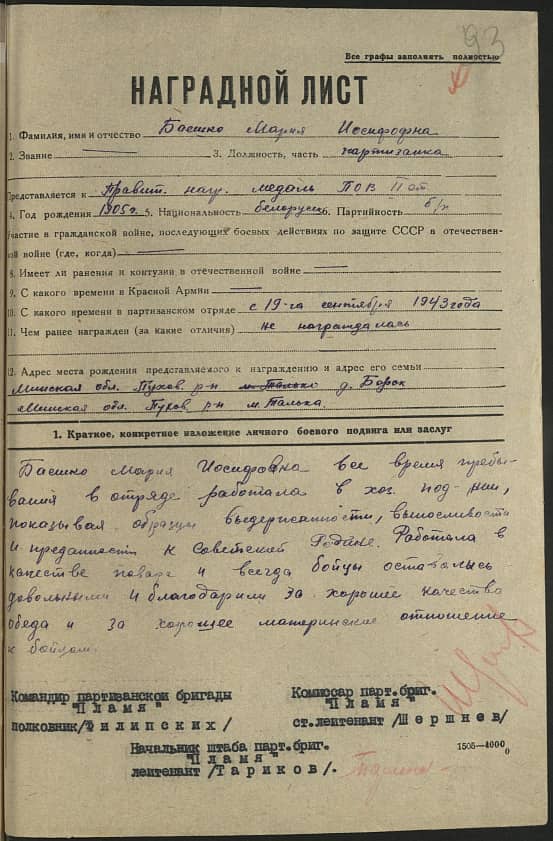 93
Все графы заполнять полностью
НАГРАДНОЙ ЛИСТ
1. Фамилия, имя и отчество Башко Мария Иосифофна
2. Звание — 3. Должность, часть партизанка
Представляется к Правит. нагр. медаль ПОВ II ст
4. Год рождения 1905г. 5. Национальность белорус 6. Партийность б/п
Участие в гражданской войне, последующих боевых действиях по защите СССР в отечествен-
ной войне (где, когда) —
8. Имеет ли ранения и контузии в отечественной войне —
9. С какого времени в Красной Армии —
10. С какого времени в партизанском отряде с 19-го сентября 1943 года
11. Чем ранее награжден (за какие отличия) не награждалась
12. Адрес места рождения представляемого к награждению и адрес его семьи
Минская обл. Пухов. р-н м. Талька д. Борок
Минская обл. Пухов. р-н м. Талька.
1. Краткое, конкретное изложение личного боевого подвига или заслуг
Башко Мария Иосифовна все время пребы-
вания в отряде работала в хоз. под-нии,
показывая образцы выдержанности, выносливости
и преданности к Советской Родине. Работала в
качестве повара и всегда бойцы оставались
довольными и благодарили за хорошее качество
обеда и за хорошее материнское отношение
к бойцам.
Командир партизанской бригады
"Пламя"
полковник/Филипских/
Комиссар парт.бриг.
"Пламя"
ст.лейтенант /Шершнев/
Начальник штаба парт.бриг.
"Пламя"
лейтенант /Тариков/.
1505—4000